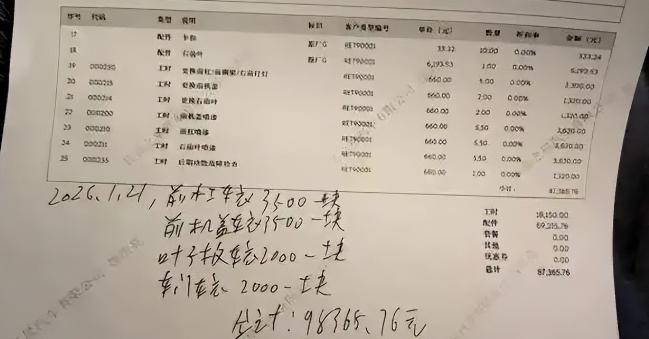 序号 代码 类型 说明 标识 客户类型编号 单价(元) 数量 折扣率 金额(元)
17 配件 卡扣 原厂G RET90001 33.32 10.00 0.00% 333.24
18 配件 右前叶 原厂G RET90001 6,193.53 1.00 0.00% 6,193.53
19 000250 工时 更换前杠/前钢梁/右前灯 RET90001 660.00 0.00% 1,320.00
20 000215 工时 更换前机盖 RET90001 660.00 2.00 0.00% 1,320.00
21 000214 工时 更换右前叶 RET90001 660.00 2.00 0.00% 1,320.00
22 000200 工时 前机盖喷漆 RET90001 660.00 5.50 0.00% 3,630.00
23 000210 工时 前杠喷漆 RET90001 660.00 5.50 0.00% 3,630.00
24 000211 工时 右前叶喷漆 RET90001 660.00 5.50 0.00% 3,630.00
25 000235 工时 后期功能故障检查 RET90001 660.00 2.00 0.00% 1,320.00
小计: 87,365.76
工时 18,150.00
配件 69,215.76
套餐 0.00
其他 0.00
优惠券 0.00
总计 87,365.76
2026.1.21,前杠车衣3500一块
前机盖车衣3500一块
叶子板车衣2000一块
车门车衣2000一块
总计:98365.76元